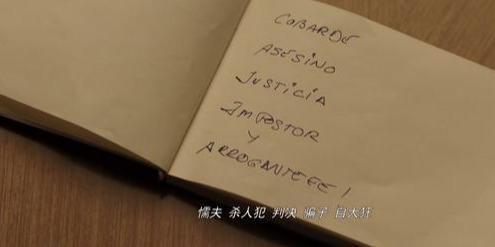 COBARDE
ASESINO
JUSTICIA
IMPOSTOR
Y
ARROGANTEEE!
懦夫 杀人犯 判决 骗子 自大狂